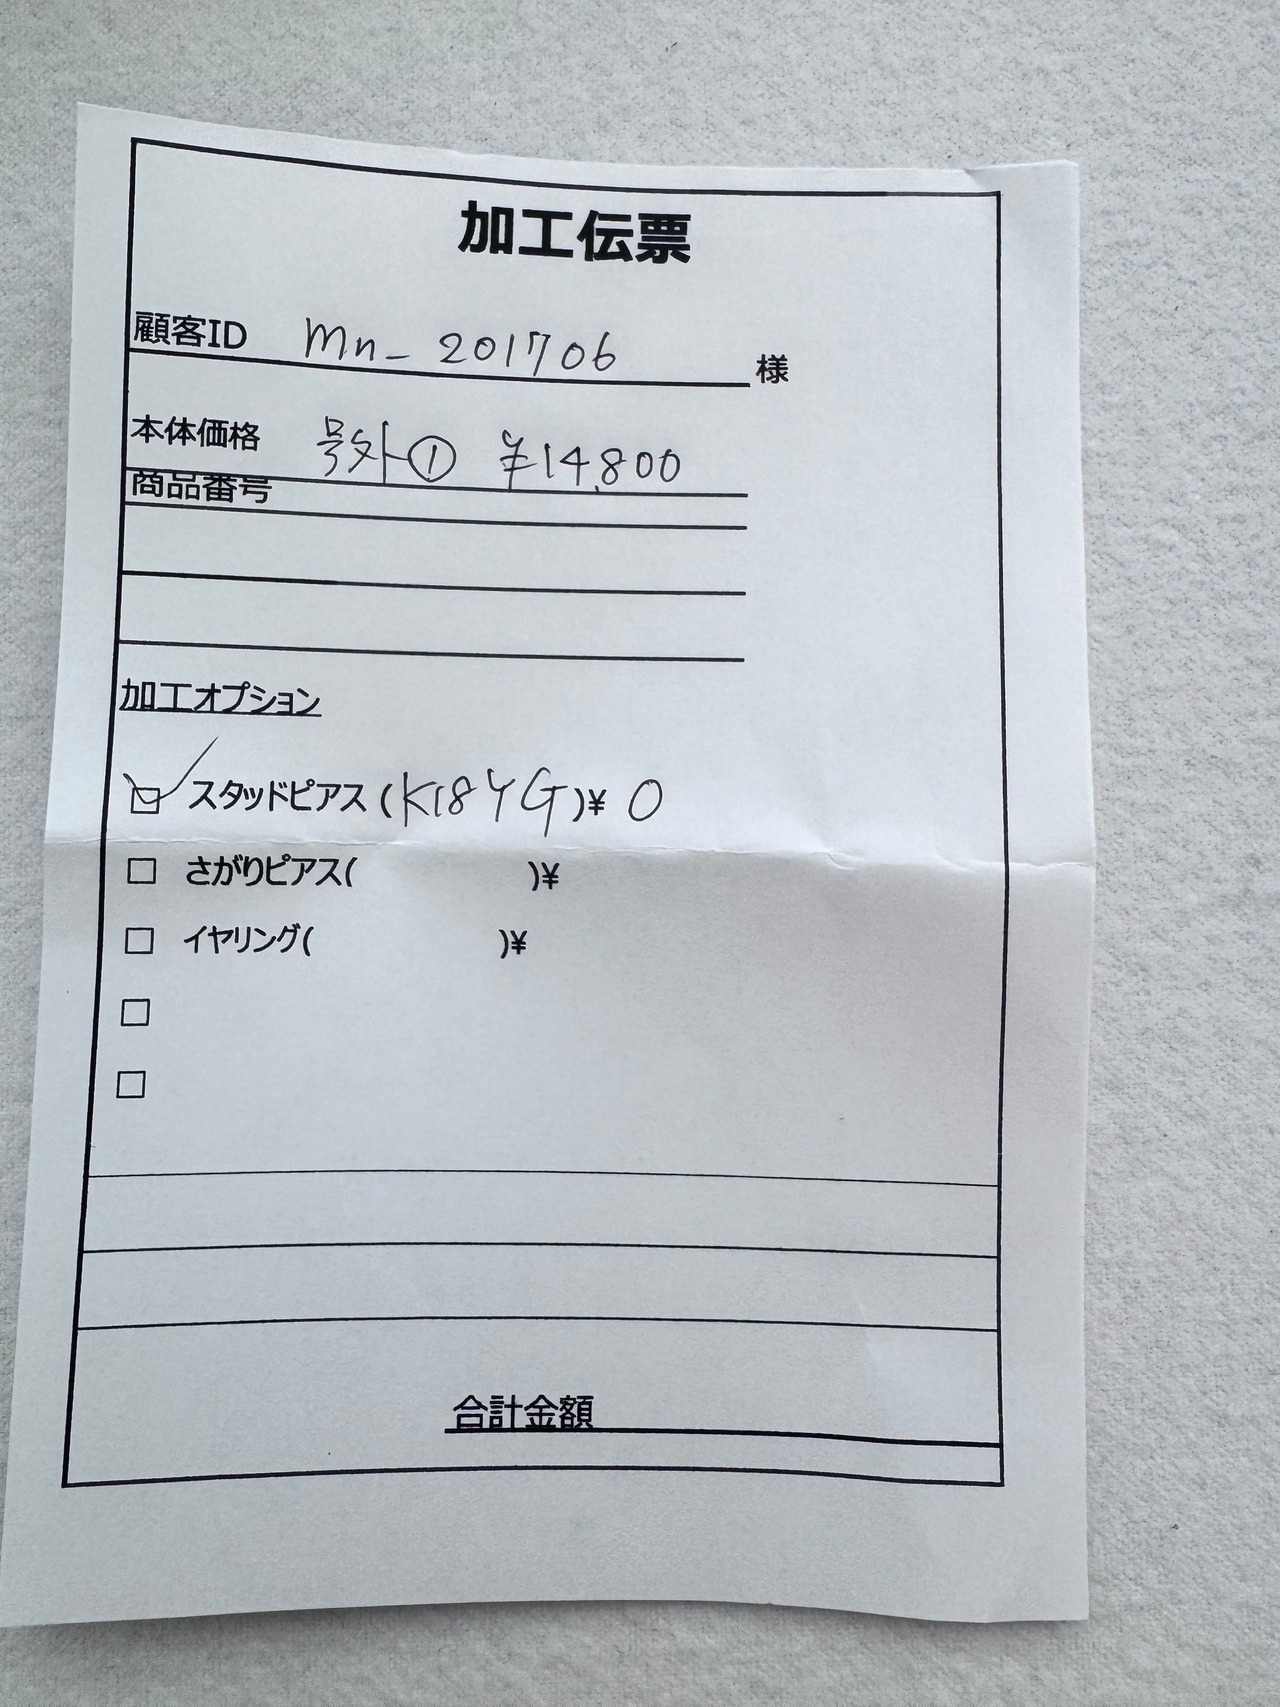 加工伝票
顧客ID mn_201706 様
本体価格 号外① ¥14,800
商品番号
加工オプション
☑ スタッドピアス(K18YG)¥ 0
☐ さがりピアス( )¥
☐ イヤリング( )¥
☐
☐
合計金額